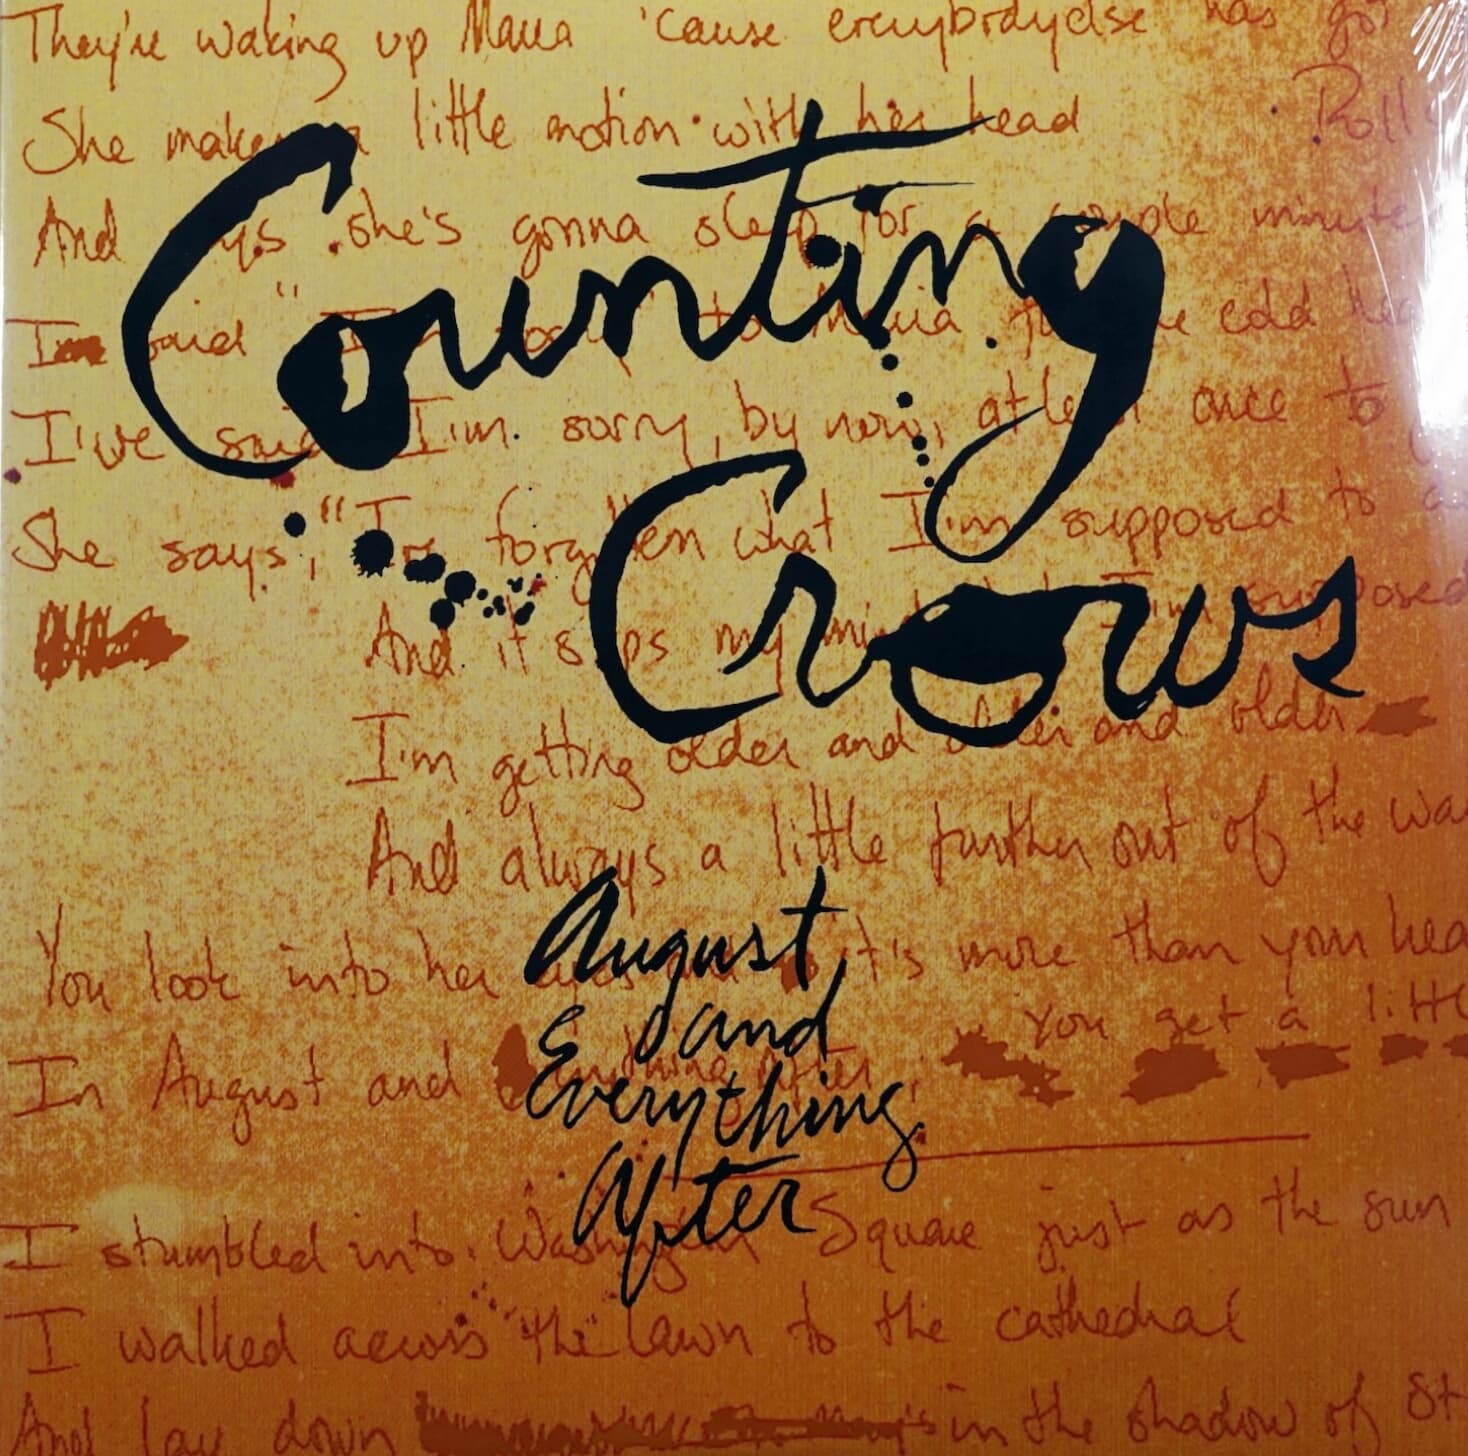 They're waking up Maria 'cause everybodyelse has got
She makes a little motion with her head Roll
And says she's gonna sleep for a couple minute
Counting
I'm said "I to Maria
I've said I'm sorry, by now, at least once to
Crows
She says, "I forgotten what I'm supposed to
And it slips my mind what I'm supposed
I'm getting older and older and older
And always a little further out of the wa
August
and
Everything
After
You look into her eyes it's more than your hea
You get a littl
In August and Everything After
I stumbled into Washington Square just as the sun
I walked across the lawn to the cathedral
And lay down in the shadow of St